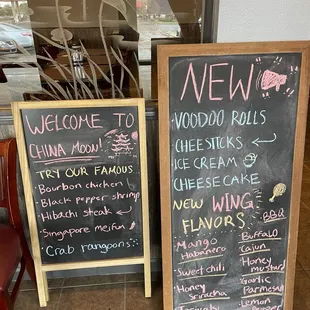 WELCOME TO
CHINA MOON!
TRY OUR FAMOUS
Bourbon chicken
Black pepper shrimp
Hibachi steak
Singapore meifun
Crab rangoons
NEW
VOODOO ROLLS
CHEESTICKS
ICE CREAM
CHEESECAKE
NEW WING
FLAVORS
BBQ
Mango Habanero
Sweet chili
Honey Sriracha
Teriyaki
Buffalo
Cajun
Honey mustard
Garlic Parmesan
Lemon